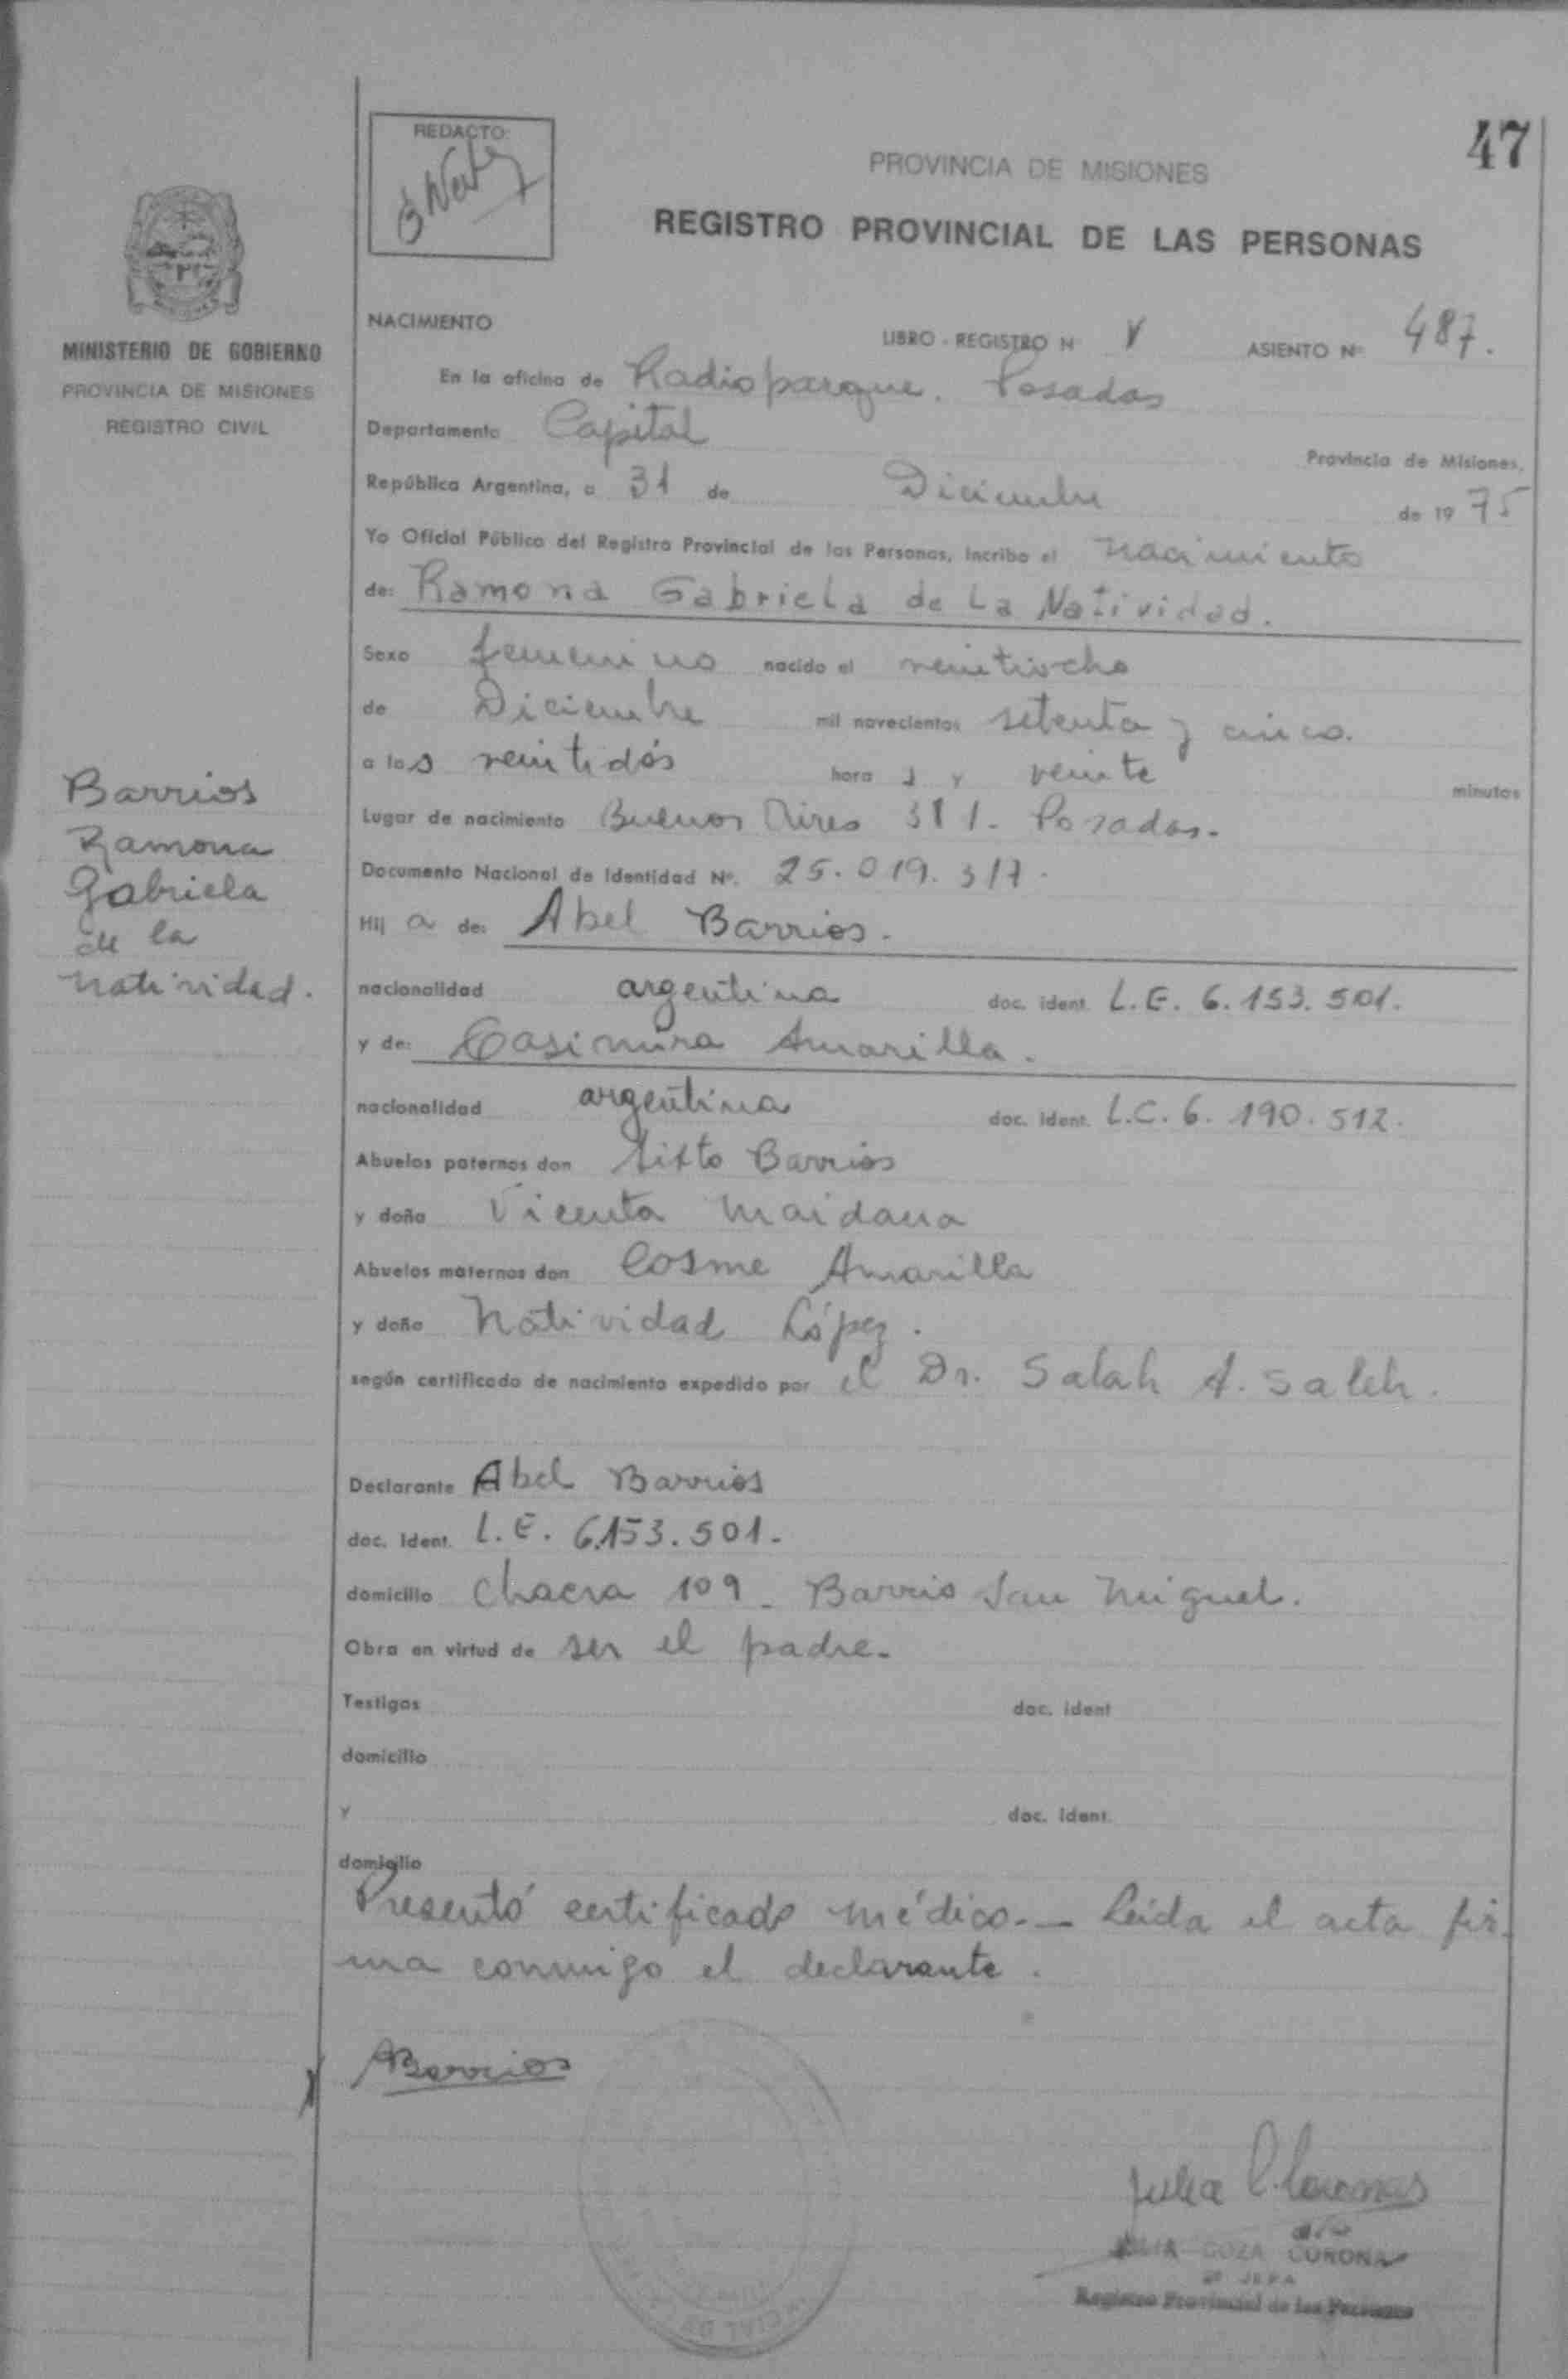 47
REDACTO:
PROVINCIA DE MISIONES
REGISTRO PROVINCIAL DE LAS PERSONAS
MINISTERIO DE GOBIERNO
PROVINCIA DE MISIONES
REGISTRO CIVIL
NACIMIENTO
LIBRO - REGISTRO Nº V ASIENTO Nº 487.
En la oficina de Radioparque. Posadas
Departamento Capital
Provincia de Misiones,
República Argentina, a 31 de Diciembre de 1975
Yo Oficial Público del Registro Provincial de las Personas, incribo el nacimiento
de: Ramona Gabriela de La Natividad.
Sexo femenino nacido el veintiocho
de Diciembre mil novecientos setenta y cinco.
a las veintidós horas y veinte minutos
Lugar de nacimiento Buenos Aires 381. Posadas.
Documento Nacional de Identidad Nº. 25.019.317.
Hija de: Abel Barrios.
nacionalidad argentina doc. ident. L.E. 6.153.501.
y de: Casimira Amarilla.
nacionalidad argentina doc. ident. L.C. 6.190.512.
Abuelos paternos don Sixto Barrios
y doña Vicenta Maidana
Abuelos maternos don Cosme Amarilla
y doña Natividad López.
según certificado de nacimiento expedido por el Dr. Salah A. Saleh.
Declarante Abel Barrios
doc. ident. L.E. 6.153.501.
domicilio Chacra 109 - Barrio San Miguel.
Obra en virtud de ser el padre.
Testigos doc. ident
domicilio
y doc. ident.
domicilio
Presentó certificado médico.- Leída el acta fir-
ma conmigo el declarante.
Barrios
Ramona
Gabriela
de la
Natividad.
ABarrios
Julia C. Coronas
JULIA COZA CORONA
JEFA
Registro Provincial de las Personas